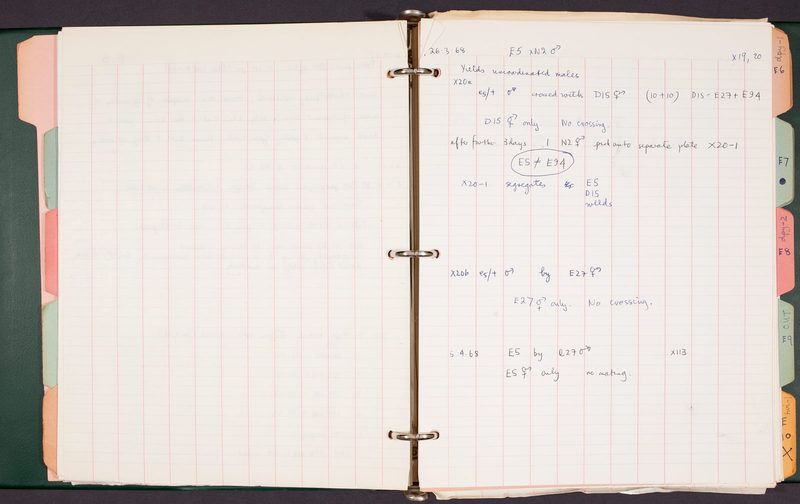 26.3.68 E5 x N2 ♂
X19, 20
Yields uncoordinated males
X20a
e5/+ ♂ crossed with D15 ⚥ (10+10) D15 = E27 + E94
D15 ⚥ only No crossing.
after further 3 days 1 N2 ⚥ put onto separate plate X20-1
E5 ≠ E94
X20-1 segregates E5
D15
wilds
X20b e5/+ ♂ by E27 ⚥
E27 ⚥ only. No crossing.
5 4.68 E5 by E27 ♂ X113
E5 ⚥ only no mating.
dpy-1
E6
E7
dpy-2
E8
OUT
E9
E10
X